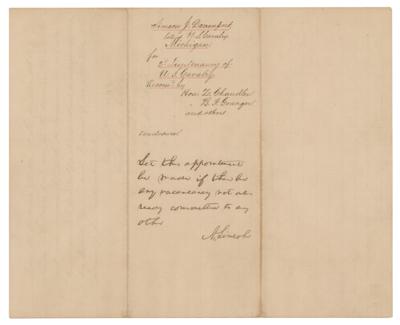 J. Davenport
late of U. S. Cavalry
Michigan
for
2d Lieutenancy of
U. S. Cavalry
Recomd by
Hon. Z. Chandler
B. F. Granger
and others
Let this appointment
be made if there be
any vacancy not al-
ready committed to any
other
A. Lincoln